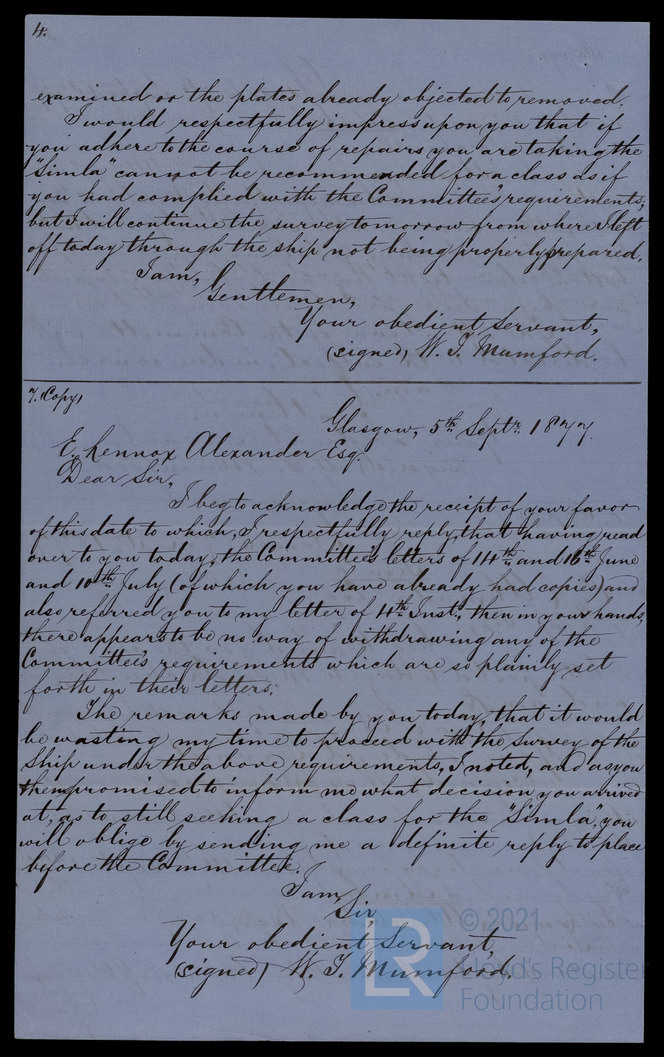 4.
examined or the plates already objected to removed.
I would respectfully impress upon you that if
you adhere to the course of repairs you are taking the
"Simla" cannot be recommended for a class as if
you had complied with the Committee's requirements,
but I will continue the survey tomorrow from where I left
off today through the ship not being properly prepared.
I am,
Gentlemen,
Your obedient Servant,
(signed) W. T. Mumford.
7. Copy,
Glasgow, 5th Septr. 1877.
E. Lennox Alexander Esq.
Dear Sir,
I beg to acknowledge the receipt of your favor
of this date to which, I respectfully reply, that having read
over to you today, the Committee's letters of 14th and 16th June
and 10th July (of which you have already had copies) and
also referred you to my letter of 4th Inst., then in your hands,
there appears to be no way of withdrawing any of the
Committee's requirements which are so plainly set
forth in their letters.
The remarks made by you today, that it would
be wasting my time to proceed with the survey of the
Ship under the above requirements, I noted, and as you
then promised to inform me what decision you arrived
at, as to still seeking a class for the "Simla", you
will oblige by sending me a definite reply to place
before the Committee.
I am
Sir,
Your obedient Servant,
(signed) W. T. Mumford.
LR
© 2021
Lloyd's Register
Foundation